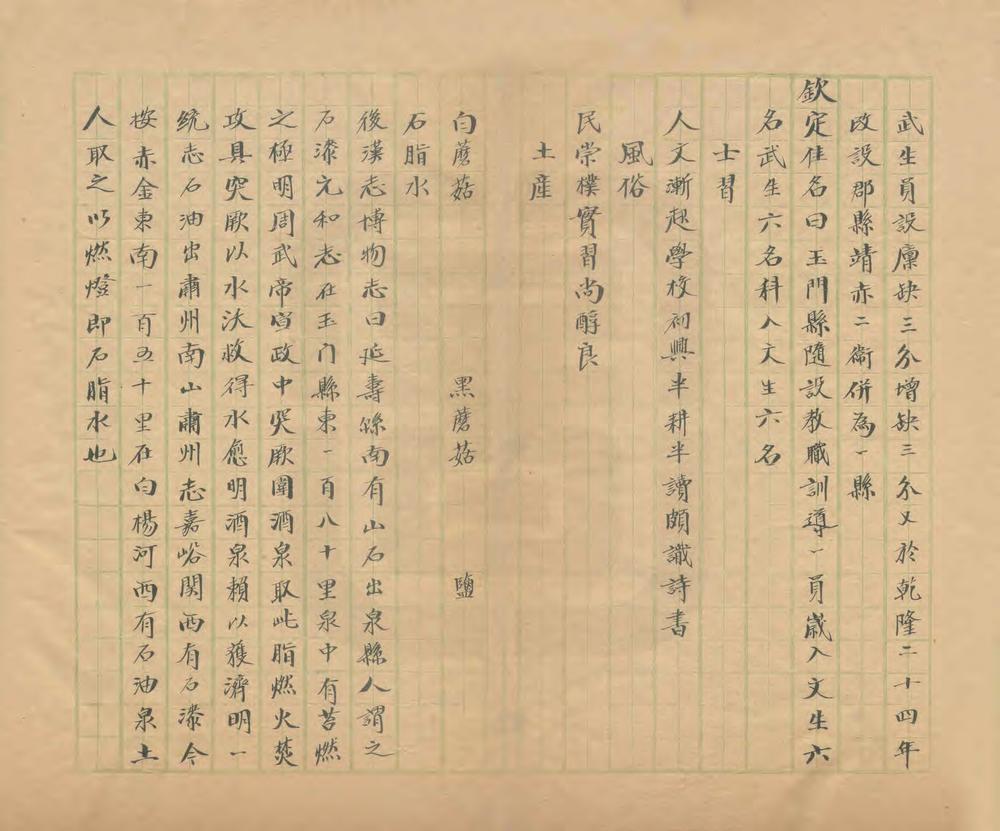 武生員設廪缺三分增缺三分又於乾隆二十四年
改設郡縣靖赤二衞併為一縣
欽定佳名曰玉門縣隨設教職訓導一員歲入文生六
名武生六名科入文生六名
士習
人文漸起學校初興半耕半讀頗識詩書
風俗
民崇樸實習尚醇良
土産
白蘑菇 黑蘑菇 鹽
石脂水
後漢志博物志曰延壽縣南有山石出泉縣人謂之
石漆元和志在玉门縣東一百八十里泉中有苔燃
之極明周武帝宣政中突厥圍酒泉取此脂燃火焚
攻具突厥以水沃救得水愈明酒泉賴以獲濟明一
统志石油出肅州南山肅州志嘉峪関西有石漆今
按赤金東南一百五十里在白楊河西有石油泉土
人取之以燃燈即石脂水也